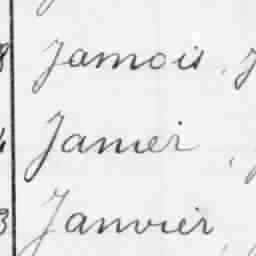 8 Jamois, J
4 Janier, J
3 Janvier,